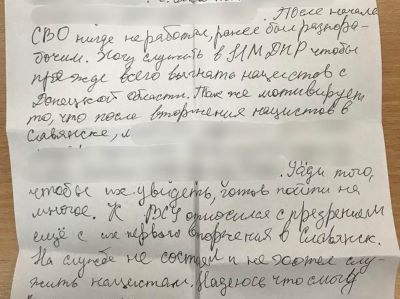 После начала
СВО нигде не работал, ранее был разнора-
бочим. Хочу служить в НМ ДНР чтобы
прежде всего выгнать нацистов с
Донецкой области. Также мотивирует
то, что после вторжения нацистов в
Славянске, м
Ради того,
чтобы их увидеть, готов пойти на
многое. К ВСУ относился с презрением
ещё с их первого вторжения в Славянск.
На службе не состоял и не хотел слу-
жить нацистам. Надеюсь что смогу